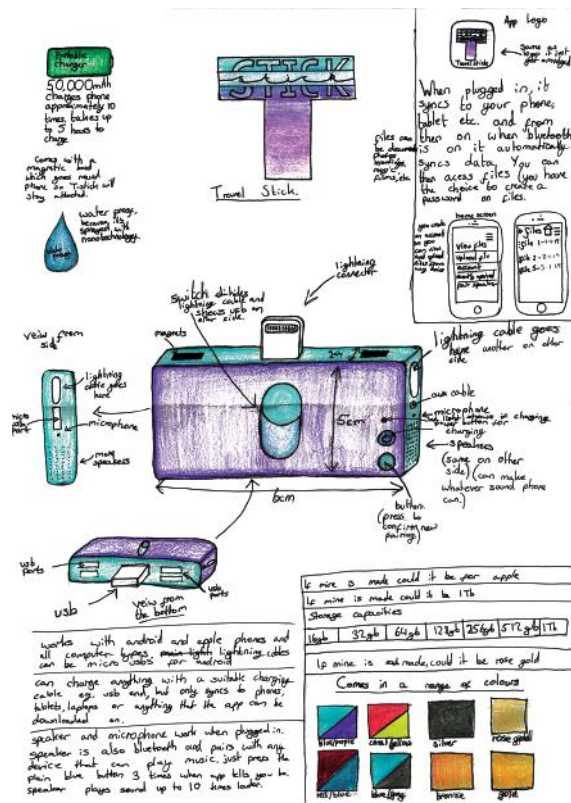 Portable
charger
50,000mAh
charges phone
approximately 10
times. takes up
to 5 hours to
charge
Comes with a
magnetic band
which goes round
phone so Tstick will
stay attached.
water proof,
because its
sprayed with
nanotechnology.
STICK
stick
Travel Stick.
App Logo
Travel stick
Same as
logo
When plugged in, it
syncs to your phone,
tablet etc. and from
then on, when bluetooth
is on it automatically
syncs data, You can
then acess files (you have
the choice to create a
password on files.
files can
be documents,
photos,
music,
films, etc
home screen
view files
upload file
account
pair speaker
files
lightning
connector
switch
lightning cable and
shows usb on
other side.
magnets
2cm
5cm
6cm
lightning cable goes
here another on other
side
aux cable
microphone
power button for
charging
speakers
(same on other
side) (can make
whatever sound phone
can.)
button
(press to
confirm new
pairing)
veiw from
side
lightning
cable goes
here
micro
usb
port
microphone
more
speakers
usb
ports
usb
veiw from
the bottom
usb
ports
works with android and apple phones and
all computer types. lightning cables
can be micro usbs for android
can charge anything with a suitable charging
cable eg. usb end, but only syncs to phones,
tablets, laptops or anything that the app can be
downloaded on.
speaker and microphone work when plugged in.
speaker is also bluetooth and pairs with any
device that can play music. just press the
plain blue button 3 times when app tells you to.
speaker plays sound up to 10 times louder.
If mine is made could it be for apple
If mine is made could it be 1Tb
Storage capacities
16gb 32gb 64gb 128gb 256gb 512gb 1Tb
If mine is made, could it be rose gold
Comes in a range of colours
blue/purple coral/yellow silver rose gold
red/blue blue/grey bronze gold